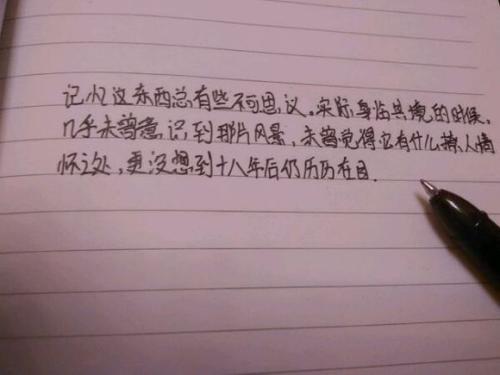 记忆这东西总有些不可思议。实际身临其境的时候。
几乎未曾意识到那片风景，未曾觉得它有什么撩人情
怀之处，更没想到十八年后仍历历在目.